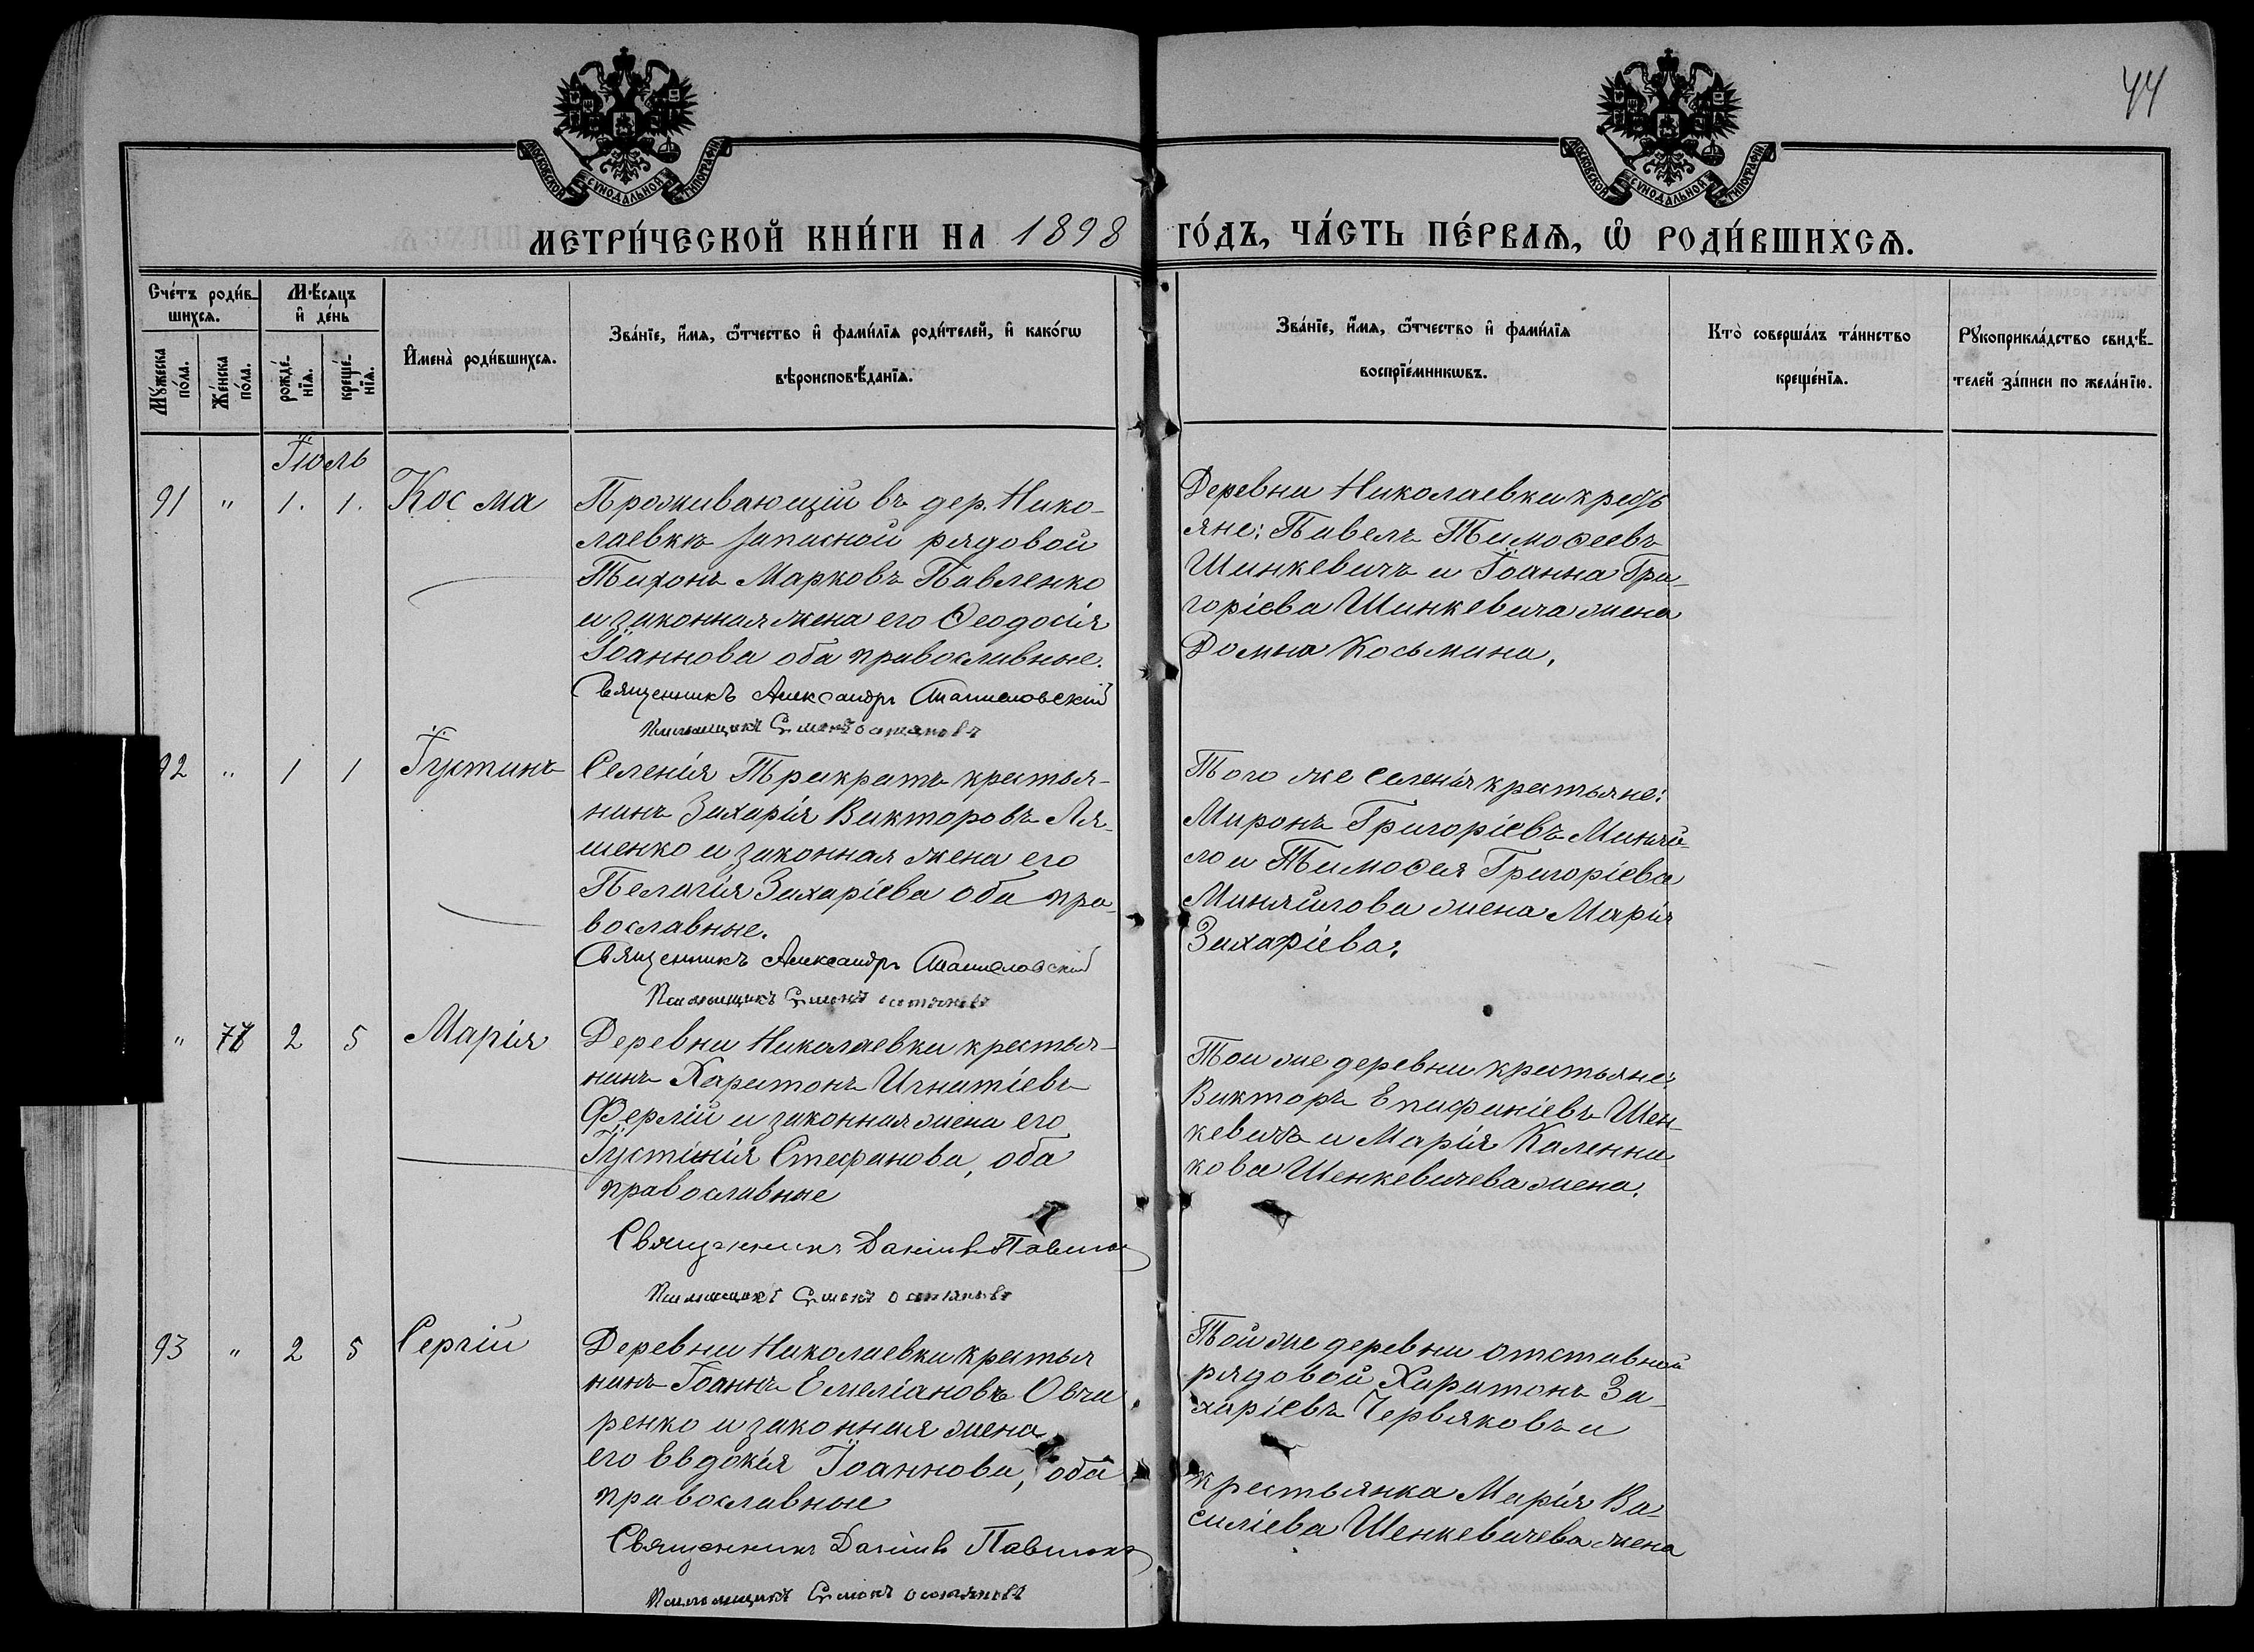 44
МОСКОВСКОЙ СѴНОДАЛЬНОЙ ТИПОГРАФІИ
МОСКОВСКОЙ СѴНОДАЛЬНОЙ ТИПОГРАФІИ
МЕТРИ́ЧЕСКОЙ КНИ́ГИ НА 1898 ГО́ДЪ, ЧА́СТЬ ПЕ́РВАѦ, Ѽ РОДИ́ВШИХСѦ.
Сче́тъ роди́в-
шихсѧ.
Мꙋ́жеска по́ла.
Же́нска по́ла.
Мѣ́сѧцъ
и҆ де́нь
рожде́-
нїѧ.
креще́-
нїѧ.
И҆мена̀ роди́вшихсѧ.
Зва́нїе, и҆́мѧ, ѻ҆́тчество и҆ фамѝлїѧ роди́телей, и҆ како́гѡ
вѣроисповѣ́данїѧ.
Зва́нїе, и҆́мѧ, ѻ҆́тчество и҆ фамѝлїѧ
воспрїе́мникѡвъ.
Кто̀ соверша́лъ та́инство
креще́нїѧ.
Рꙋкоприкла́дство свидѣ́-
телей за́писи по жела́нїю.
Іюль
91 " 1. 1. Косма
Проживающій въ дер. Нико-
лаевкѣ запасной рядовой
Тихонъ Марковъ Павленко
и законная жена его Ѳеодосія
Іоаннова оба православные.
Священникъ Александръ
Псаломщикъ Симонъ Остяновъ
Деревни Николаевки крест
яне: Павелъ Тимоѳеевъ
Шинкевичъ и Іоанна Гри-
горіева Шинкевича жена
Домна Косьмина.
92 " 1 1 Іустинъ
Селенія Трикратъ крестья-
нинъ Захарія Викторовъ Ля-
шенко и законная жена его
Пелагія Захаріева оба пра-
вославные.
Священникъ Александръ
Псаломщикъ Симонъ Остяновъ
Того же селенія крестьяне:
Миронъ Григоріевъ Миняй-
ло и Тимоѳея Григоріева
Миняйлова жена Марія
Захаріева.
" 78 2 5 Марія
Деревни Николаевки крестья-
нинъ Харитонъ Игнатіевъ
Ферлій и законная жена его
Іустинія Стефанова, оба
православные
Священникъ Даніилъ
Псаломщикъ Симонъ Остяновъ
Той же деревни крестьяне:
Викторъ Епифаніевъ Шен-
кевичъ и Марія Каленни-
кова Шенкевичева жена.
93 " 2 5 Сергій
Деревни Николаевки крестья
нинъ Іоаннъ Емеліановъ Овча
ренко и законная жена
его Евдокія Іоаннова, оба
православные
Священникъ Даніилъ
Псаломщикъ Симонъ Остяновъ
Той же деревни отставной
рядовой Харитонъ За-
харіевъ Червяковъ и
крестьянка Марія Ва-
силіева Шенкевичева жена